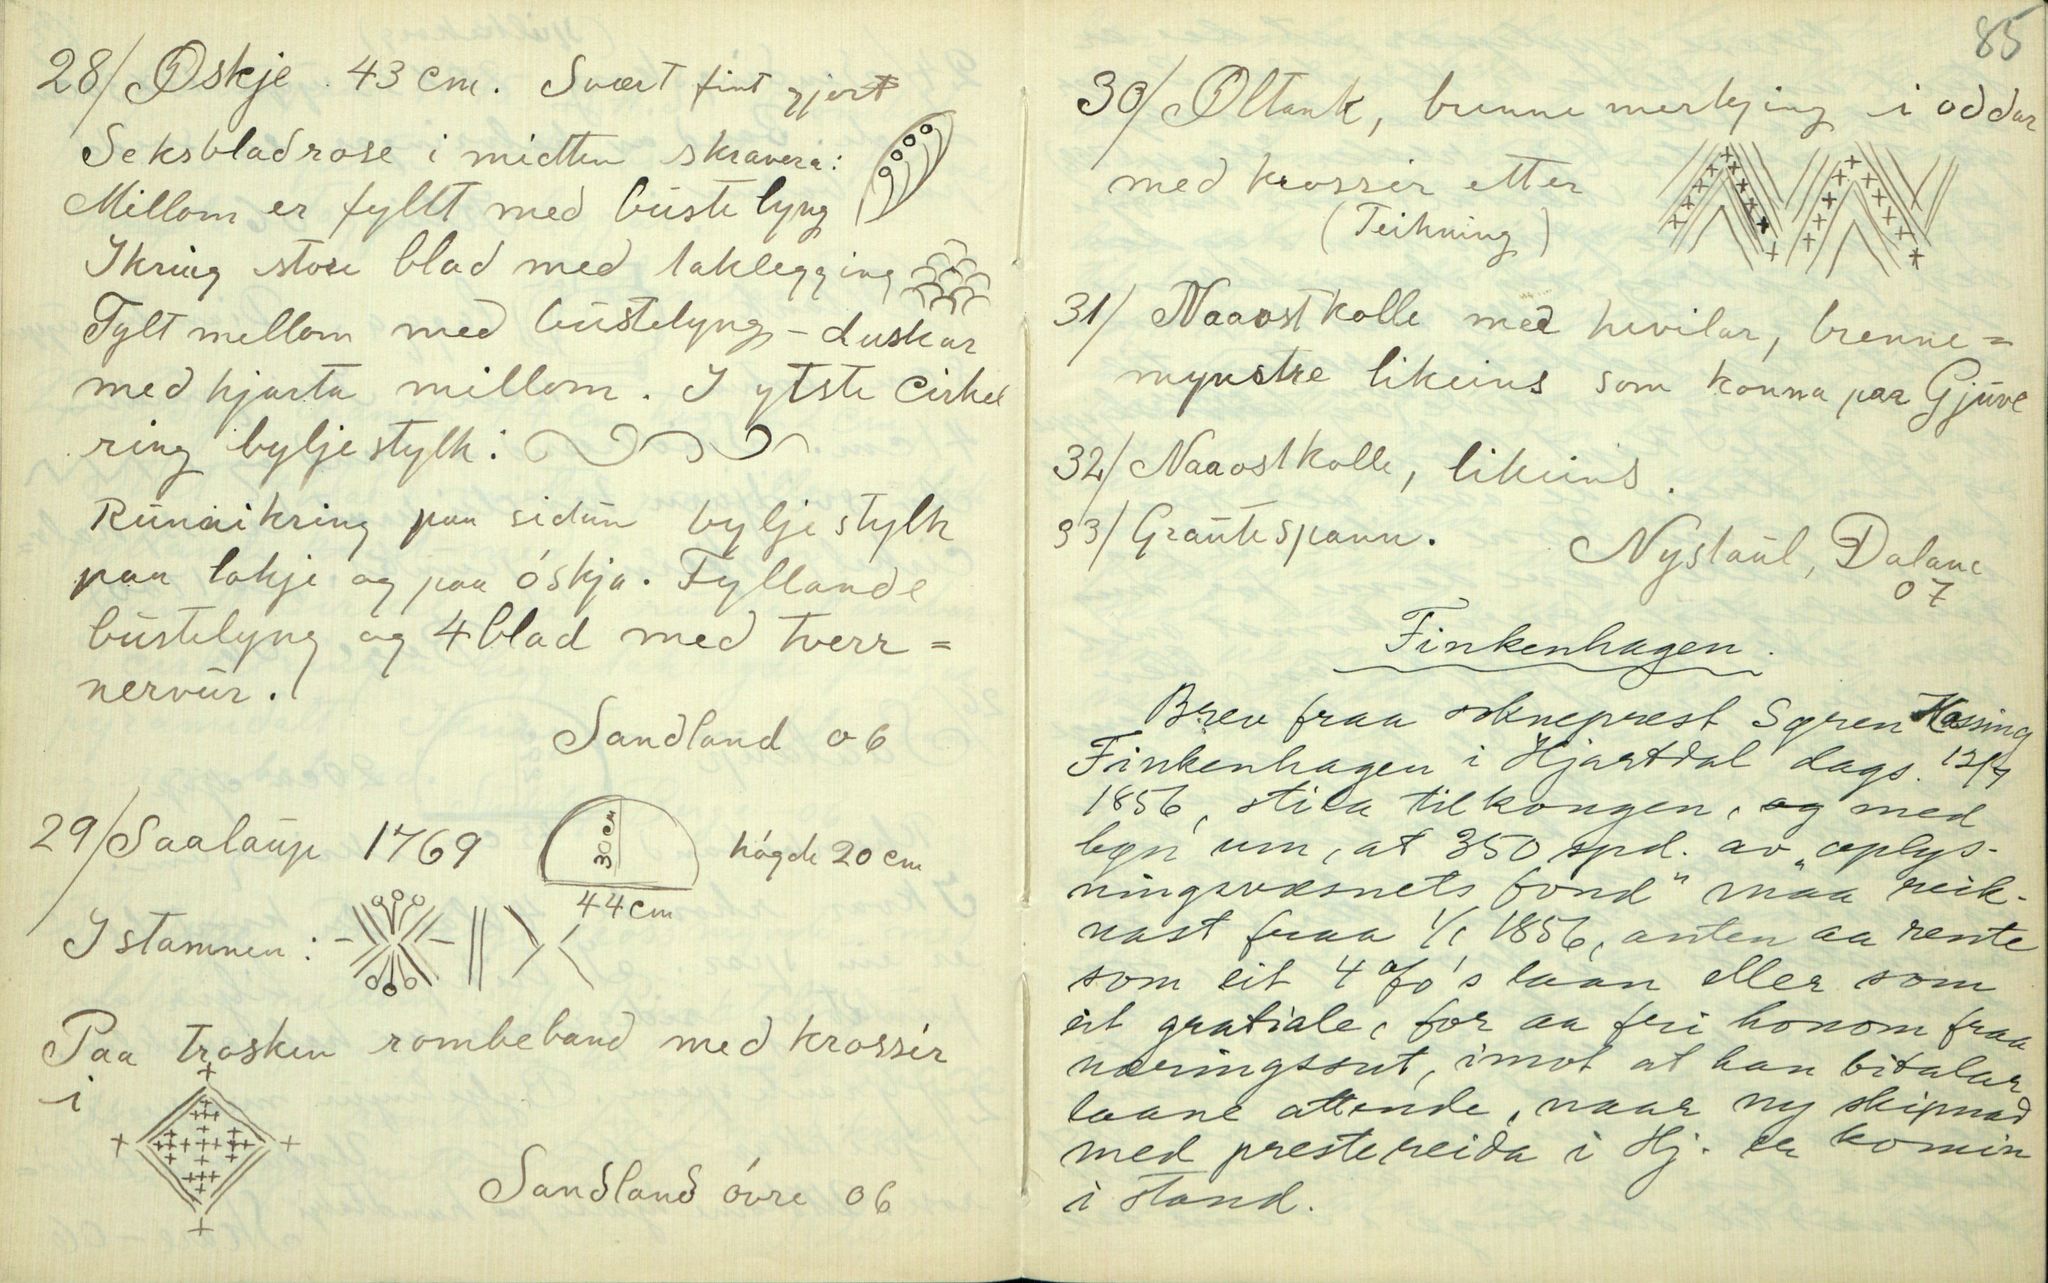 28/ Øskje. 43 cm. Svært fint gjort
Seksbladrose i midten skravera:
Millom er fyllt med bustelyng
Ikring store blad med taklegging
Fylt mellom med bustelyng-duskar
med hjarta millom. I ytste cirkel
ring byljestylk:
Runaikring paa sidun byljestylk
paa lokje og paa óskja. Fyllande
bustelyng og 4 blad med tverr=
nervur.
Sandland 06
29/ Saalaup 1769 30 cm hógde 20 cm
44 cm
I stammen:
Paa trosken rombeband med krossér
i
Sandland óvre 06
85
30/ Øltank, brenne merkjing i oddar
med krossér etter
(Teikning)
31/ Naaostkolle med hevilar, brenne=
mynstre likeins som konna paa Gjuve
32/ Naaostkolle, likeins.
33/ Grautespann. Nystaul, Dalane
07
Finkenhagen.
Brev fraa sokneprest Søren Hassing
Finkenhagen i Hjartdal dags. 12/7
1856, stila til kongen, og med
bøn um, at 350 spd. av "oplys-
ningsvæsnets fond" maa reik-
nast fraa 1/1 1856, anten aa rente
som eit 4 %'s laan eller som
eit gratiale, for aa fri honom fraa
næringssut, imot at han bitalar
laane attende, naar ny skipnad
med prestereida i Hj. er komin
i stand.